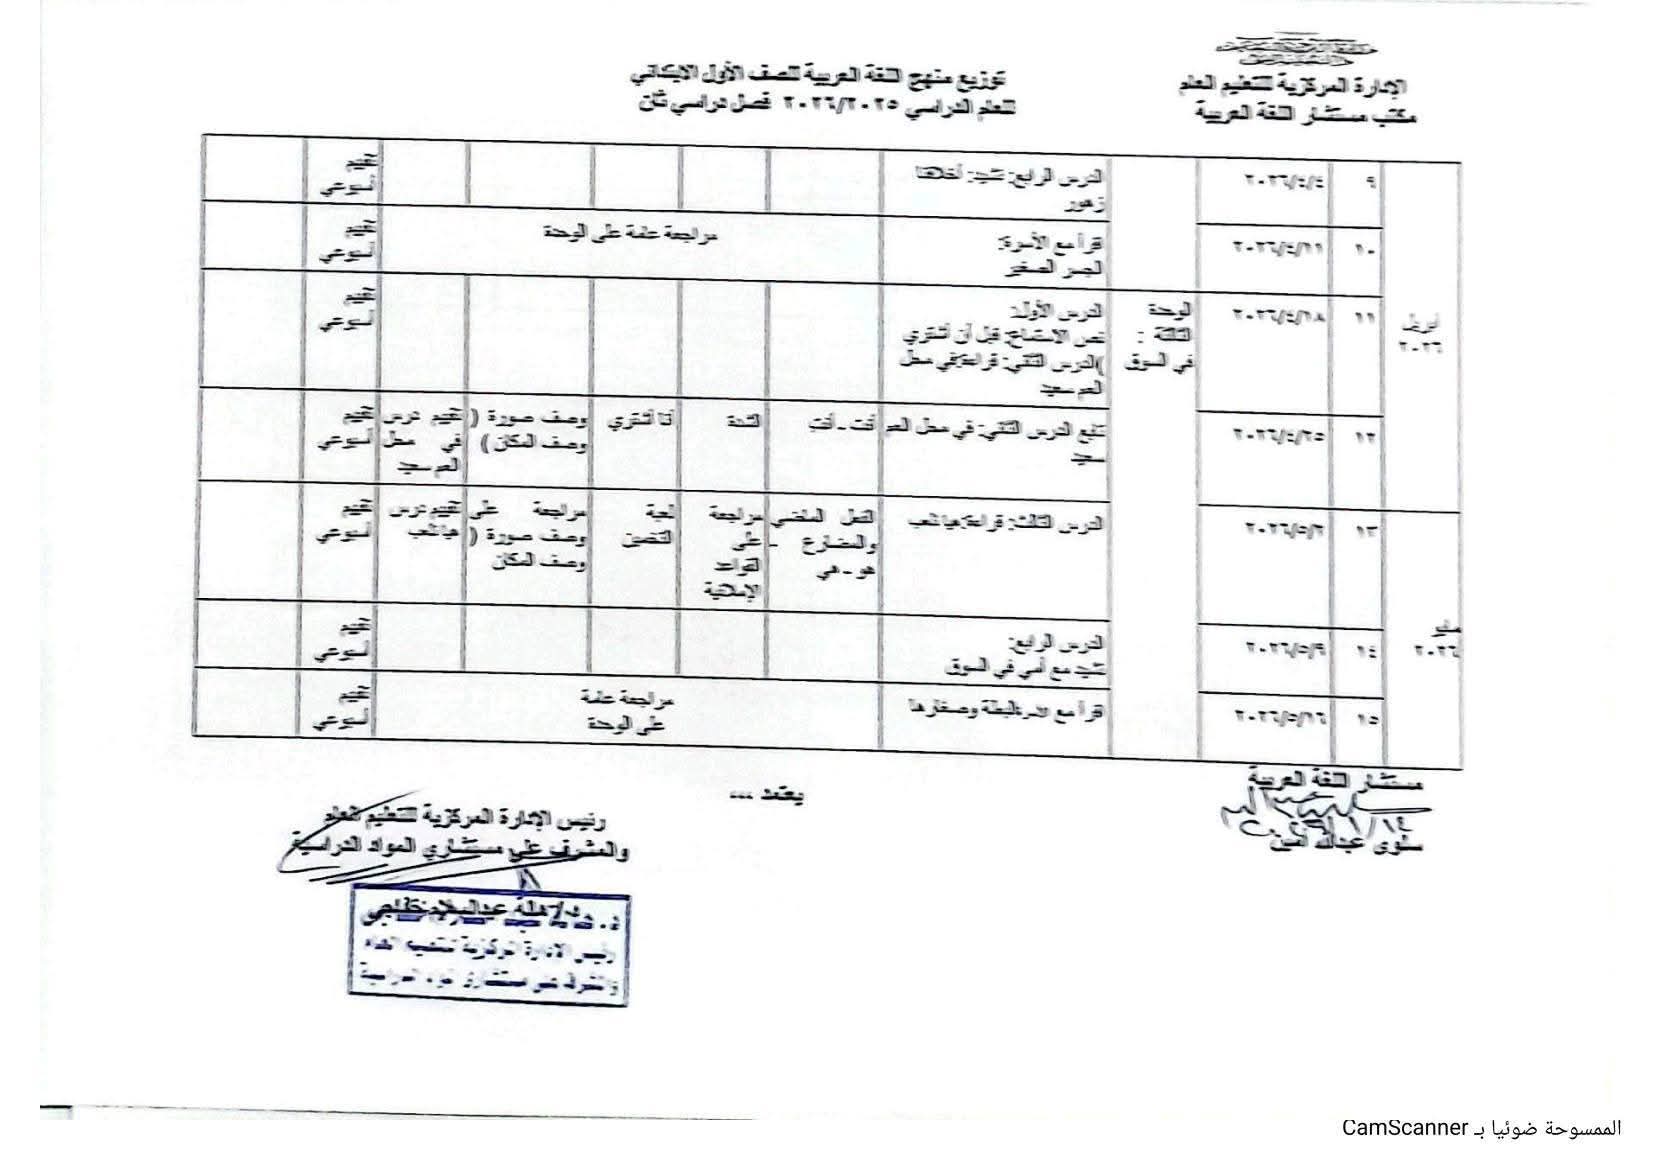 الإدارة المركزية للتعليم العام
مكتب مستشار اللغة العربية
توزيع منهج اللغة العربية للصف الأول الابتدائي
للعام الدراسي ٢٠٢٦/٢٠٢٥ فصل دراسي ثان
أبريل ٢٠٢٦
٩ ٢٠٢٦/٤/٤ الدرس الرابع: نشيد: أخلاقنا زهور تقييم أسبوعي
١٠ ٢٠٢٦/٤/١١ اقرأ مع الأسرة: الجسر الصغير مراجعة عامة على الوحدة تقييم أسبوعي
الوحدة الثالثة : في السوق
١١ ٢٠٢٦/٤/١٨ الدرس الأول: نص الاستماع: قبل أن أشتري )الدرس الثاني: قراءة:في محل العم سعيد تقييم أسبوعي
١٢ ٢٠٢٦/٤/٢٥ تابع الدرس الثاني: في محل العم سعيد أنت - أنتِ الشدة أنا أشتري وصف صورة ( وصف المكان ) تقييم درس في محل العم سعيد تقييم أسبوعي
مايو ٢٠٢٦
١٣ ٢٠٢٦/٥/٢ الدرس الثالث: قراءة:هيا نلعب الفعل الماضي والمضارع - هو - هي مراجعة على القواعد الإملائية لعبة التضمين مراجعة على وصف صورة ( وصف المكان تقييم درس هيا نلعب تقييم أسبوعي
١٤ ٢٠٢٦/٥/٩ الدرس الرابع: نشيد مع أمي في السوق تقييم أسبوعي
١٥ ٢٠٢٦/٥/١٦ اقرأ مع البطة وصغارها مراجعة عامة على الوحدة تقييم أسبوعي
مستشار اللغة العربية
عبدالله أمين
يعتمد ...
رئيس الإدارة المركزية للتعليم العام
والمشرف على مستشاري المواد الدراسية
د. هالة عبدالسلام خفاجي
رئيس الإدارة المركزية للتعليم العام
والمشرف على مستشاري المواد الدراسية
الممسوحة ضوئيا بـ CamScanner